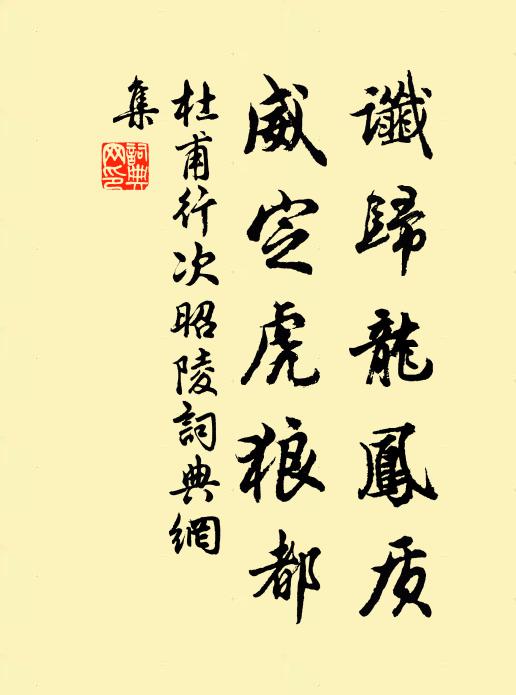 讖歸龍鳳质
威定虎狼都
杜甫行次昭陵詞典網
集
詞典網印